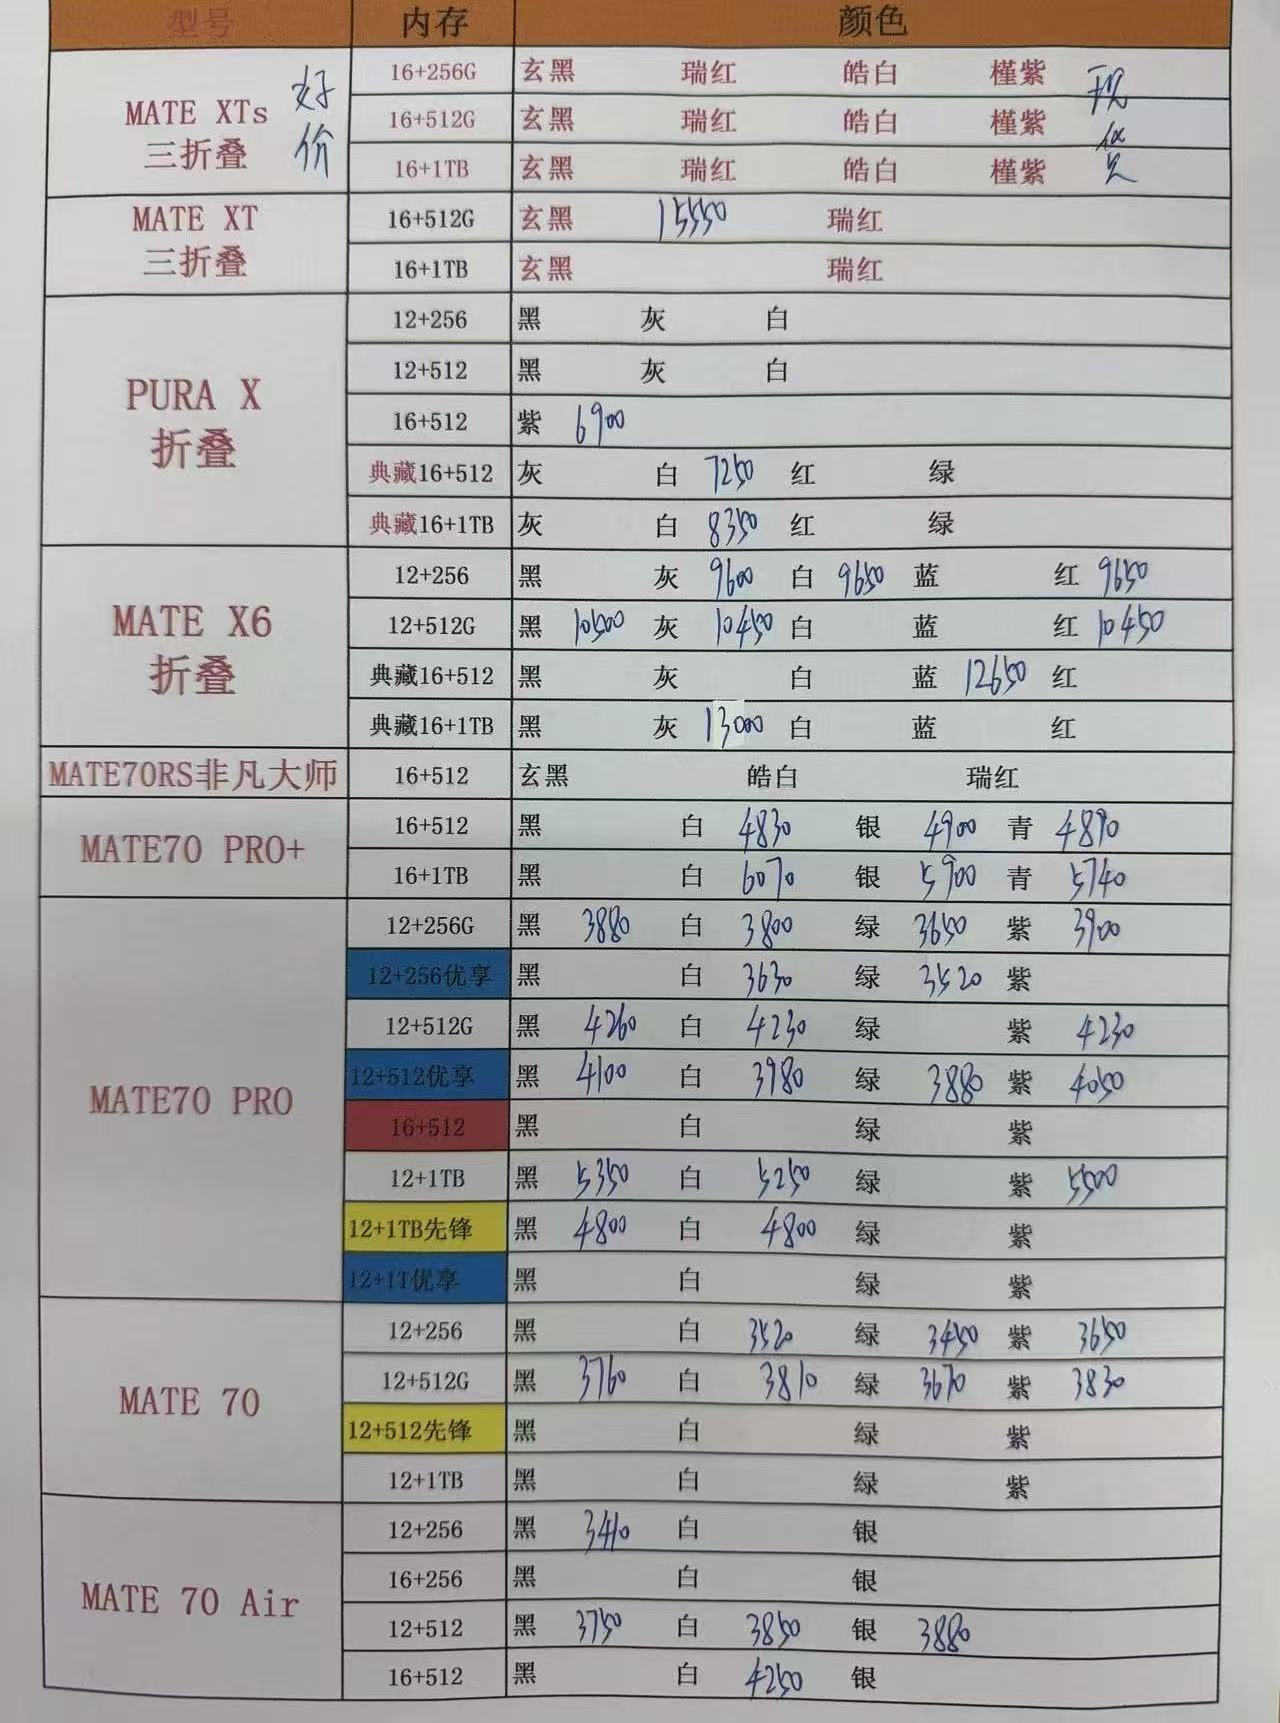 型号 内存 颜色
MATE XTs 三折叠 好价 现货
16+256G 玄黑 瑞红 皓白 槿紫
16+512G 玄黑 瑞红 皓白 槿紫
16+1TB 玄黑 瑞红 皓白 槿紫
MATE XT 三折叠
16+512G 玄黑 15550 瑞红
16+1TB 玄黑 瑞红
PURA X 折叠
12+256 黑 灰 白
12+512 黑 灰 白
16+512 紫 6900
典藏16+512 灰 白 7250 红 绿
典藏16+1TB 灰 白 8350 红 绿
MATE X6 折叠
12+256 黑 灰 9600 白 9650 蓝 红 9650
12+512G 黑 10500 灰 10450 白 蓝 红 10450
典藏16+512 黑 灰 白 蓝 12650 红
典藏16+1TB 黑 灰 13000 白 蓝 红
MATE70RS非凡大师 16+512 玄黑 皓白 瑞红
MATE70 PRO+
16+512 黑 白 4830 银 4900 青 4890
16+1TB 黑 白 6070 银 5900 青 5740
MATE70 PRO
12+256G 黑 3880 白 3800 绿 3650 紫 3900
12+256优享 黑 白 3630 绿 3520 紫
12+512G 黑 4260 白 4230 绿 紫 4230
12+512优享 黑 4100 白 3980 绿 3880 紫 4050
16+512 黑 白 绿 紫
12+1TB 黑 5350 白 5250 绿 紫 5500
12+1TB先锋 黑 4800 白 4800 绿 紫
12+1T优享 黑 白 绿 紫
MATE 70
12+256 黑 白 3520 绿 3450 紫 3650
12+512G 黑 3760 白 3810 绿 3670 紫 3830
12+512先锋 黑 白 绿 紫
12+1TB 黑 白 绿 紫
MATE 70 Air
12+256 黑 3410 白 银
16+256 黑 白 银
12+512 黑 3750 白 3850 银 3880
16+512 黑 白 4250 银